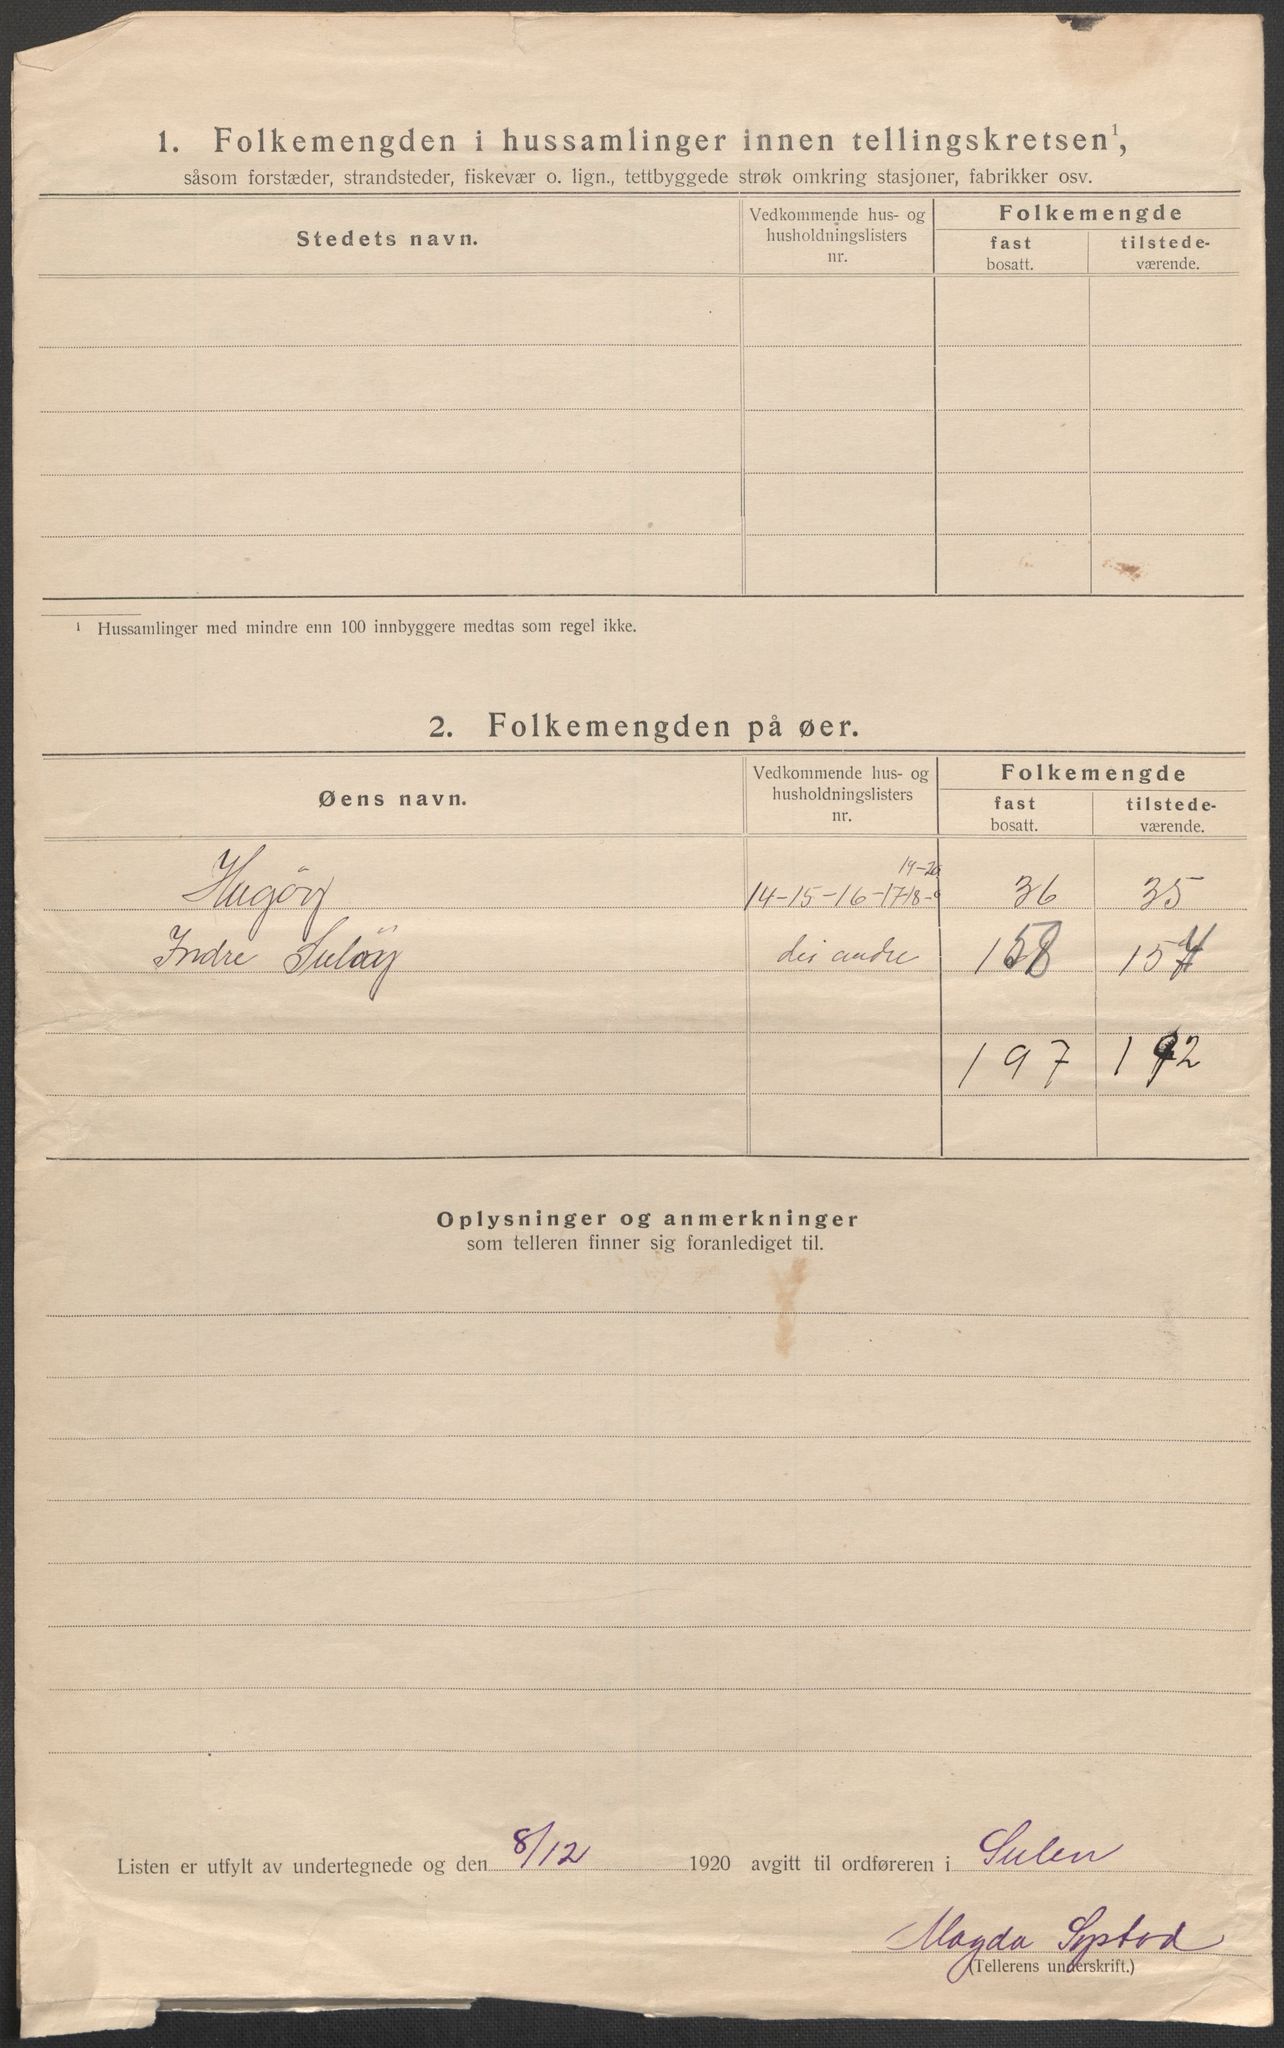 1. Folkemengden i hussamlinger innen tellingskretsen¹,
såsom forstæder, strandsteder, fiskevær o. lign., tettbyggede strøk omkring stasjoner, fabrikker osv.
Stedets navn.
Vedkommende hus- og husholdningslisters nr.
Folkemengde
fast bosatt.
tilstede-værende.
¹ Hussamlinger med mindre enn 100 innbyggere medtas som regel ikke.
2. Folkemengden på øer.
Øens navn.
Vedkommende hus- og husholdningslisters nr.
Folkemengde
fast bosatt.
tilstede-værende.
19-20
Hugöy 14-15-16-17-18- 36 35
Indre Sulöy dei andre 158 157
197 192
Oplysninger og anmerkninger
som telleren finner sig foranlediget til.
Listen er utfylt av undertegnede og den 8/12 1920 avgitt til ordføreren i Sulen
Magda
(Tellerens underskrift.)